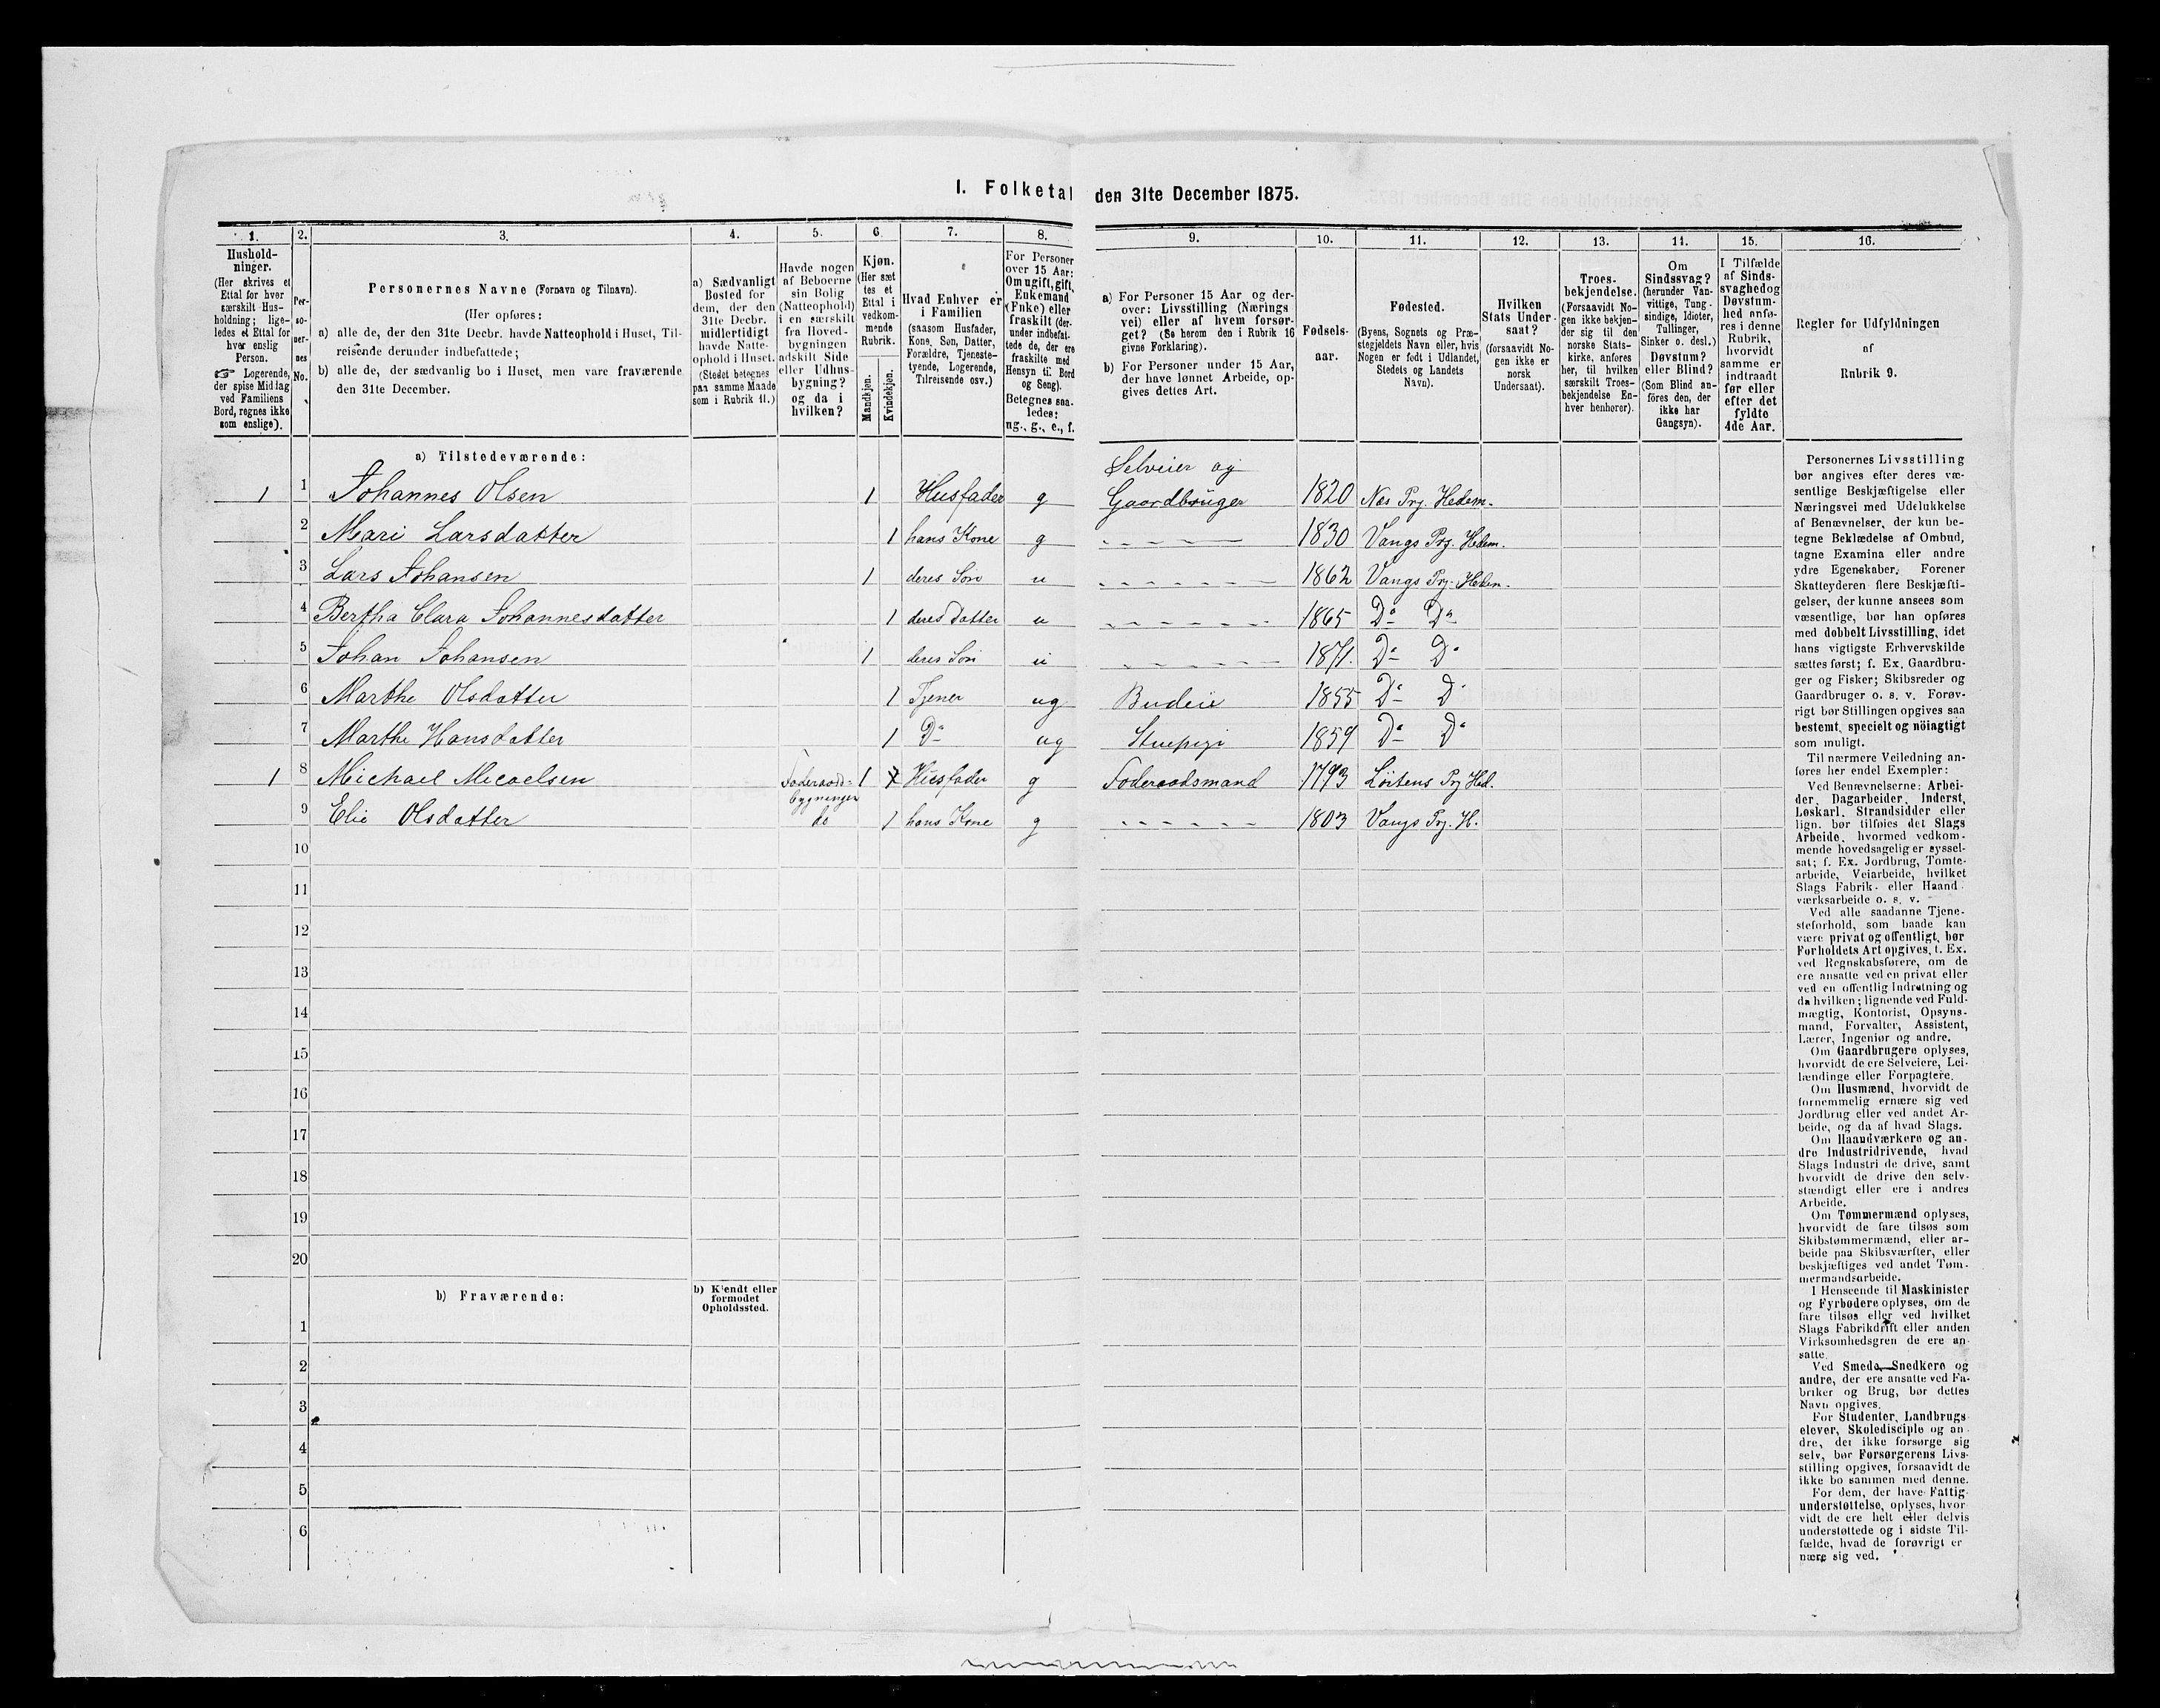 I. Folketal den 31te December 1875.
1. 2. 3. 4. 5. 6. 7. 8. 9. 10. 11. 12. 13. 14. 15. 16.
Hushold-
ninger.
(Her skrives et
Ettal for hver
særskilt Hus-
holdning; lige-
ledes et Ettal for
hver enslig
Person.
☞ Logerende,
der spise Middag
ved Familiens
Bord, regnes ikke
som enslige).
Per-
so-
ner-
nes
No.
Personernes Navne (Fornavn og Tilnavn).
(Her opføres:
a) alle de, der den 31te Decbr. havde Natteophold i Huset, Til-
reisende derunder indbefattede;
b) alle de, der sædvanlig bo i Huset, men vare fraværende
den 31te December.
a) Sædvanligt
Bosted for
dem, der den
31te Decbr.
midlertidigt
havde Natte-
ophold i Huset.
(Stedet betegnes
paa samme Maade
som i Rubrik 11.)
Havde nogen
af Beboerne
sin Bolig
(Natteophold)
i en særskilt
fra Hoved-
bygningen
adskilt Side
eller Udhus-
bygning?
og da i
hvilken?
Kjøn.
(Her sæt
tes et
Ettal i
vedkom-
mende
Rubrik.
Mandkjøn.
Kvindekjøn.
Hvad Enhver er
i Familien
(saasom Husfader,
Kone, Søn, Datter,
Forældre, Tjeneste-
tyende, Logerende,
Tilreisende osv.)
For Personer
over 15 Aar:
Om ugift, gift,
Enkemand
(Enke) eller
fraskilt (der-
under indbefat-
tede de, der ere
fraskilte med
Hensyn til Bord
og Seng).
Betegnes saa-
ledes:
ug., g., e., f.
a) For Personer 15 Aar og der-
over: Livsstilling (Nærings
vei) eller af hvem forsør-
get? (Se herom den i Rubrik 16
givne Forklaring).
b) For Personer under 15 Aar,
der have lønnet Arbeide, op-
gives dettes Art.
Fødsels-
aar.
Fødested.
(Byens, Sognets og Præ-
stegjeldets Navn eller, hvis
Nogen er født i Udlandet,
Stedets og Landets
Navn).
Hvilken
Stats Under-
saat?
(forsaavidt No-
gen ikke er
norsk
Undersaat).
Troes-
bekjendelse.
(Forsaavidt No-
gen ikke bekjen-
der sig til den
norske Stats-
kirke, anføres
her, til hvilken
særskilt Troes-
bekjendelse En-
hver henhører).
Om
Sindssvag?
(herunder Van-
vittige, Tung-
sindige, Idioter,
Tullinger,
Sinker o. desl.)
Døvstum?
eller Blind?
(Som Blind an-
føres den, der
ikke har
Gangsyn).
I Tilfælde
af Sinds-
svaghed og
Døvstum-
hed anfø-
res i denne
Rubrik,
hvorvidt
samme er
indtraadt
før eller
efter det
fyldte
4de Aar.
Regler for Udfyldningen
af
Rubrik 9.
a) Tilstedeværende:
Selveier og
1 1 Johannes Olsen 1 Husfader g Gaardbruger 1820 Næs Prg. Hedem.
2 Mari Larsdatter 1 hans Kone g 1830 Vangs Prg. Hedem.
3 Lars Johansen 1 deres Søn u 1862 Vangs Prg. Hedem.
4 Bertha Clara Johannesdatter 1 deres Datter u 1865 Do Do
5 Johan Johansen 1 deres Søn u 1871. Do Do
6 Marthe Olsdatter 1 Tjener ug Budeie 1855 Do Do
7 Marthe Hansdatter 1 Do ug Stuepige 1859 Do Do
1 8 Michael Micaelsen Foderaads= 1 Husfader g Foderaadsmand 1793 Löitens Prg Hed.
bygningen
9 Elie Olsdatter do 1 hans Kone g 1803 Vangs Prg. H.
10
11
12
13
14
15
16
17
18
19
20
b) Fraværende:
b) Kjendt eller
formodet
Opholdssted.
1
2
3
4
5
6
Personernes Livsstilling
bør angives efter deres væ-
sentlige Beskjæftigelse eller
Næringsvei med Udelukkelse
af Benævnelser, der kun be-
tegne Beklædelse af Ombud,
tagne Examina eller andre
ydre Egenskaber. Forener
Skatteyderen flere Beskjæfti-
gelser, der kunne ansees som
væsentlige, bør han opføres
med dobbelt Livsstilling, idet
hans vigtigste Erhvervskilde
sættes først; f. Ex. Gaardbru-
ger og Fisker; Skibsreder og
Gaardbruger o. s. v. Forøv-
rigt bør Stillingen opgives saa
bestemt, specielt og nöiagtigt
som muligt.
Til nærmere Veiledning an-
føres her endel Exempler:
Ved Benævnelserne: Arbei-
der, Dagarbeider, Inderst,
Løskarl, Strandsidder eller
lign. bør tilføies det Slags
Arbeide, hvormed vedkom-
mende hovedsagelig er syssel-
sat; f. Ex. Jordbrug, Tomte-
arbeide, Veiarbeide, hvilket
Slags Fabrik- eller Haand-
værksarbeide o. s. v.
Ved alle saadanne Tjene-
steforhold, som baade kan
være privat og offentligt, bør
Forholdets Art opgives, t. Ex.
ved Regnskabsførere, om de
ere ansatte ved en privat eller
ved en offentlig Indretning og
da hvilken; lignende ved Fuld-
mægtig, Kontorist, Opsyns-
mand, Forvalter, Assistent,
Lærer, Ingeniør og andre.
Om Gaardbrugere oplyses,
hvorvidt de ere Selveiere, Lei-
lændinge eller Forpagtere.
Om Husmænd, hvorvidt de
fornemmelig ernære sig ved
Jordbrug eller ved andet Ar-
beide, og da af hvad Slags.
Om Haandværkere og an-
dre Industridrivende, hvad
Slags Industri de drive, samt
hvorvidt de drive den selv-
stændigt eller ere i andres
Arbeide.
Om Tømmermænd oplyses,
hvorvidt de fare tilsøs som
Skibstømmermænd, eller ar-
beide paa Skibsværfter, eller
beskjæftiges ved andet Tøm-
mermandsarbeide.
I Henseende til Maskinister
og Fyrbødere oplyses, om de
fare tilsøs eller ved hvilket
Slags Fabrikdrift eller anden
Virksomhedsgren de ere an-
satte.
Ved Smede, Snedkere og
andre, der ere ansatte ved Fa-
briker og Brug, bør dettes
Navn opgives.
For Studenter, Landbrugs
elever, Skoledisciple og an-
dre, der ikke forsørge sig
selv, bør Forsørgerens Livs-
stilling opgives, forsaavidt de
ikke bo sammen med denne.
For dem, der have Fattig
understøttelse, oplyses, hvor
vidt de ere helt eller delvis
understøttede og i sidste Til-
fælde, hvad de forøvrigt er
nære sig ved.